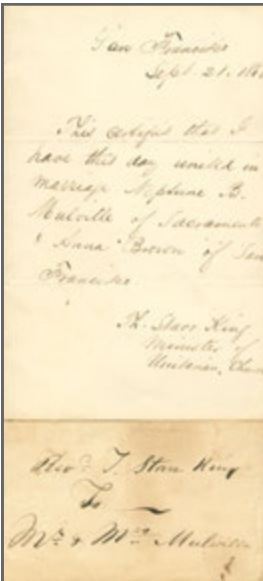 San Francisco
Sept. 21. 186
This certifies that I
have this day united in
marriage Neptune B.
Mulville of Sacramento
& Anna Brown of San
Francisco.
Th. Starr King
Minister of
Unitarian Chu
Rev.d T. Starr King
To
Mr. & Mrs. Mulville